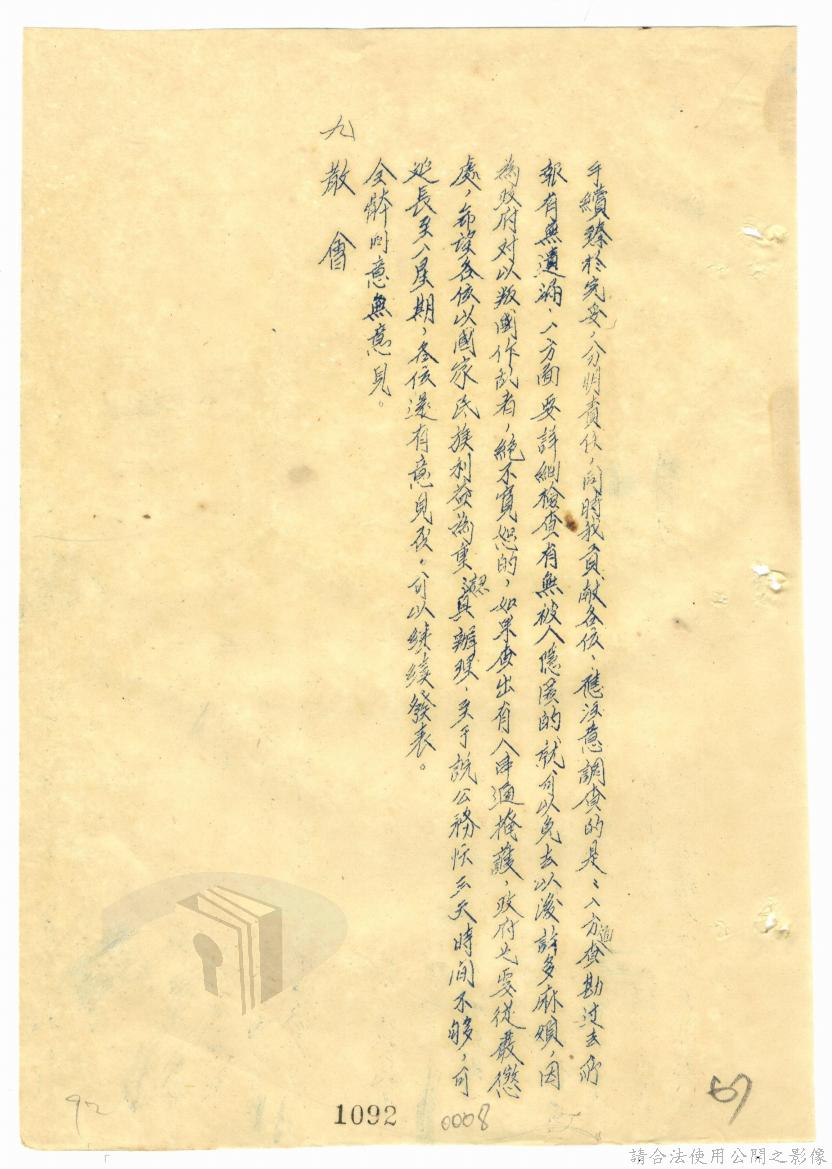 手續臻於完妥，分明責任，同時我貢献各位，應注意調查的是：一方面查勘过去所
報有無遺漏，一方面要詳細檢查有無被人隱匿的，就可以免去以後許多麻煩，因
為政府对以叛國作乱者，絕不寬恕的，如果查出有人串通掩護，政府也要從嚴懲
處，希望各位以國家民族利益為重，認真辦理，至于説公務忙三天時間不够，可
延長至一星期，各位還有意見否，可以継續發表。
全體同意無意見。
九 散會
92
1092
0008
67
請合法使用公開之影像